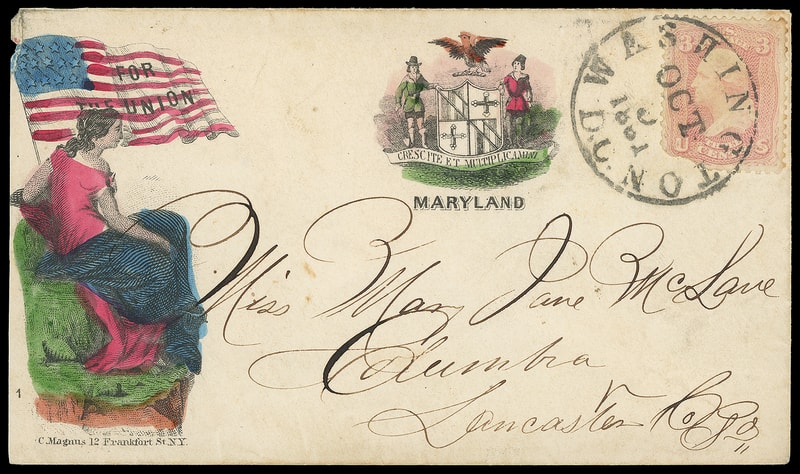 FOR
THE UNION
CRESCITE ET MULTIPLICAMINI
MARYLAND
WASHINGTON D.C.
OCT
1861
3 3
U S
Miss Mary Jane McLane
Columbia
Lancaster Co Pa
1
C. Magnus 12 Frankfort St. N.Y.